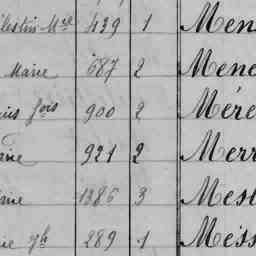 lestin Mcel 439 1 Men
Marie 687 2 Mene
uis fois 900 2 Mére
rine 921 2 Merr
rine 1386 3 Mesl
rie Jh 289 1 Mess